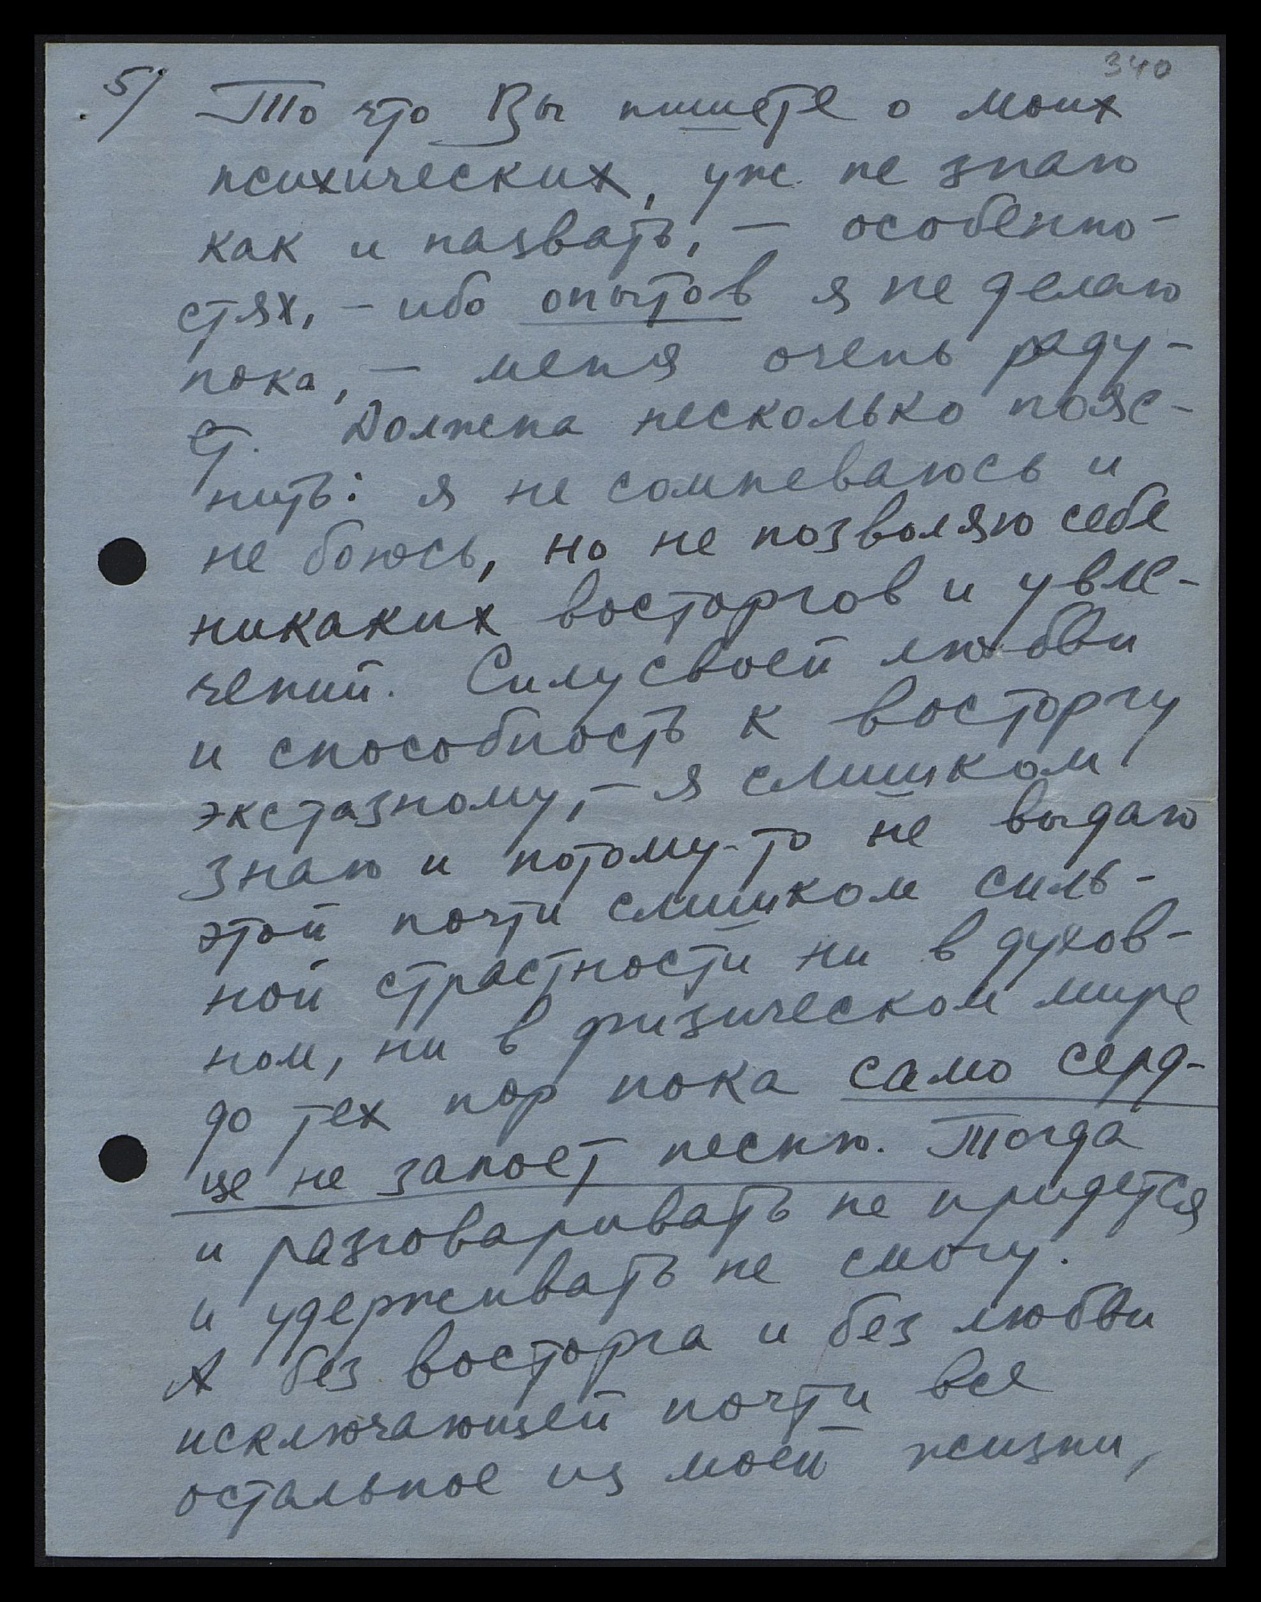 340
5/ То что Вы пишете о моих
психических, уж не знаю
как и назвать, – особенно-
стях, – ибо опытов я не делаю
пока, – меня очень раду-
ет. Должна несколько пояс-
нить: я не сомневаюсь и
не боюсь, но не позволяю себе
никаких восторгов и увле-
чений. Силу своей любви
и способность к восторгу
экстазному, – я слишком
знаю и потому-то не выдаю
этой почти слишком силь-
ной страстности ни в духов-
ном, ни в физическом мире
до тех пор пока само серд-
це не запоет песню. Тогда
и разговаривать не придется
и удерживать не смогу.
А без восторга и без любви
исключающей почти все
остальное из моей жизни,